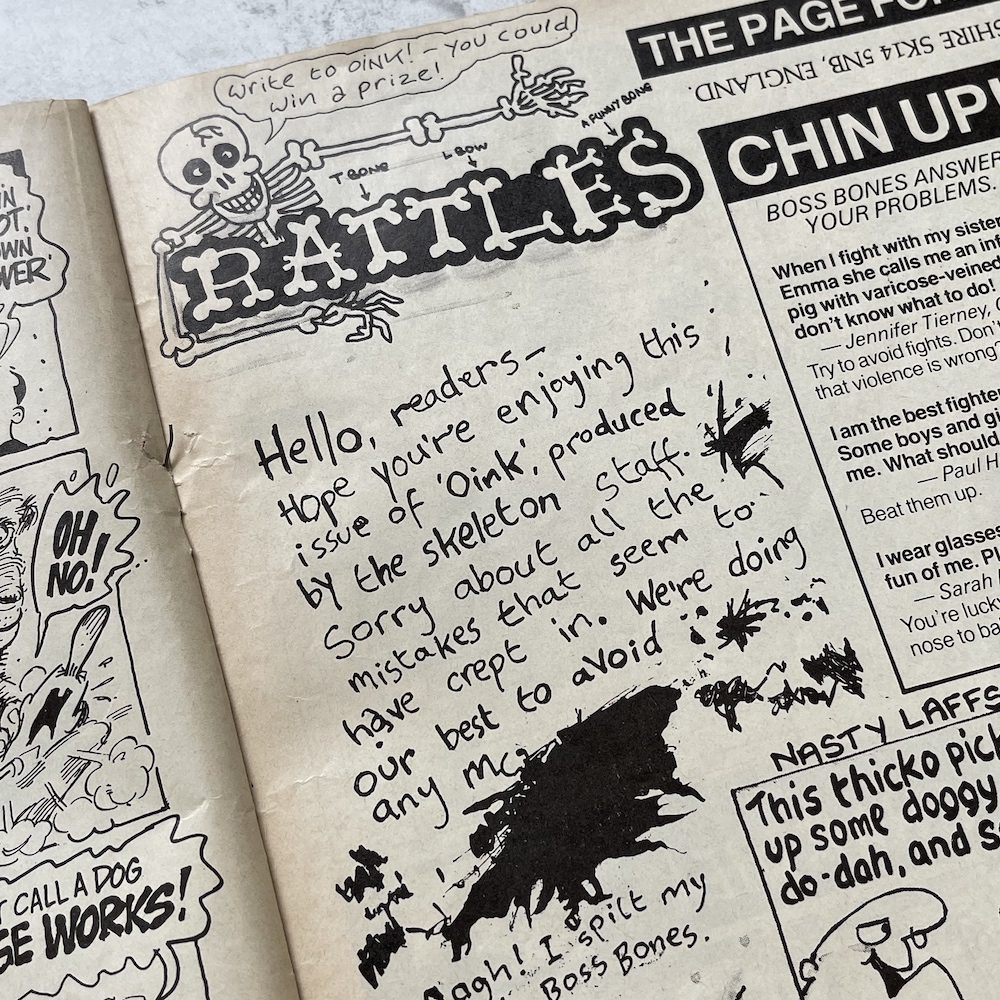 Write to OiNK! – you could
win a prize!
T BONE
L BOW
A FUNNY BONE
RATTLES
Hello, readers –
Hope you're enjoying this
issue of 'Oink', produced
by the skeleton staff.
Sorry about all the
mistakes that seem to
have crept in. We're doing
our best to avoid
any
I spilt my
Boss Bones.
THE PAGE
SHIRE SK14 5NB, ENGLAND.
CHIN UP!
BOSS BONES ANSWER
YOUR PROBLEMS.
When I fight with my sister
Emma she calls me an
pig with varicose-veined
don't know what to do!
— Jennifer Tierney,
Try to avoid fights. Don't
that violence is wrong?
I am the best fighter
Some boys and
me. What should
— Paul H
Beat them up.
I wear glasses
fun of me.
— Sarah
You're lucky
nose to
NASTY LAFFS
This thicko
up some doggy
do-dah, and
OH
NO!
CALL A DOG
WORKS!